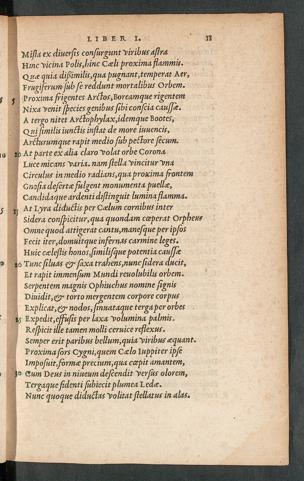 LIBER I.
Mista ex diuersis consurgunt viribus astra
Hinc vicina Polis, hinc Cæli proxima flammis.
Quæ quia dissimilis, qua pugnant, temperat Aer,
Frugiferum sub se reddunt mortalibus Orbem.
5 Proxima frigentes Arctos, Boreamque rigentem
Nixa venit species genibus sibi conscia caussæ.
A tergo nitet Arctophylax, idemque Bootes,
Qui similis iunctis instat de more iuuencis,
Arcturumque rapit medio sub pectore secum.
10 At parte ex alia claro volat orbe Corona
Luce micans varia. nam stella vincitur vna
Circulus in medio radians, qua proxima frontem
Gnosia desertæ fulgent monumenta puellæ,
Candidaque ardenti distinguit lumina flamma.
15 At Lyra diductis per Cælum cornibus inter
Sidera conspicitur, qua quondam cœperat Orpheus
Omne quod attigerat cantu, manesque per ipsos
Fecit iter, domuitque infernas carmine leges.
Huic cælestis honos, similisque potentia caussæ
20 Tunc siluas & saxa trahens, nunc sidera ducit,
Et rapit immensum Mundi reuolubilis orbem.
Serpentem magnis Ophiuchus nomine signis
Diuidit, & torto mergentem corpore corpus
Explicat, & nodos, sinuataque terga per orbes
25 Expedit, effusis per laxa volumina palmis.
Respicit ille tamen molli ceruice reflexus.
Semper erit paribus bellum, quia viribus æquant.
Proxima sors Cygni, quem Cælo Iuppiter ipse
Imposuit, formæ precium, qua cœpit amantem,
30 Cum Deus in niueum descendit versus olorem,
Tergaque fidenti subiecit plumea Ledæ.
Nunc quoque diductas volitat stellatus in alas.